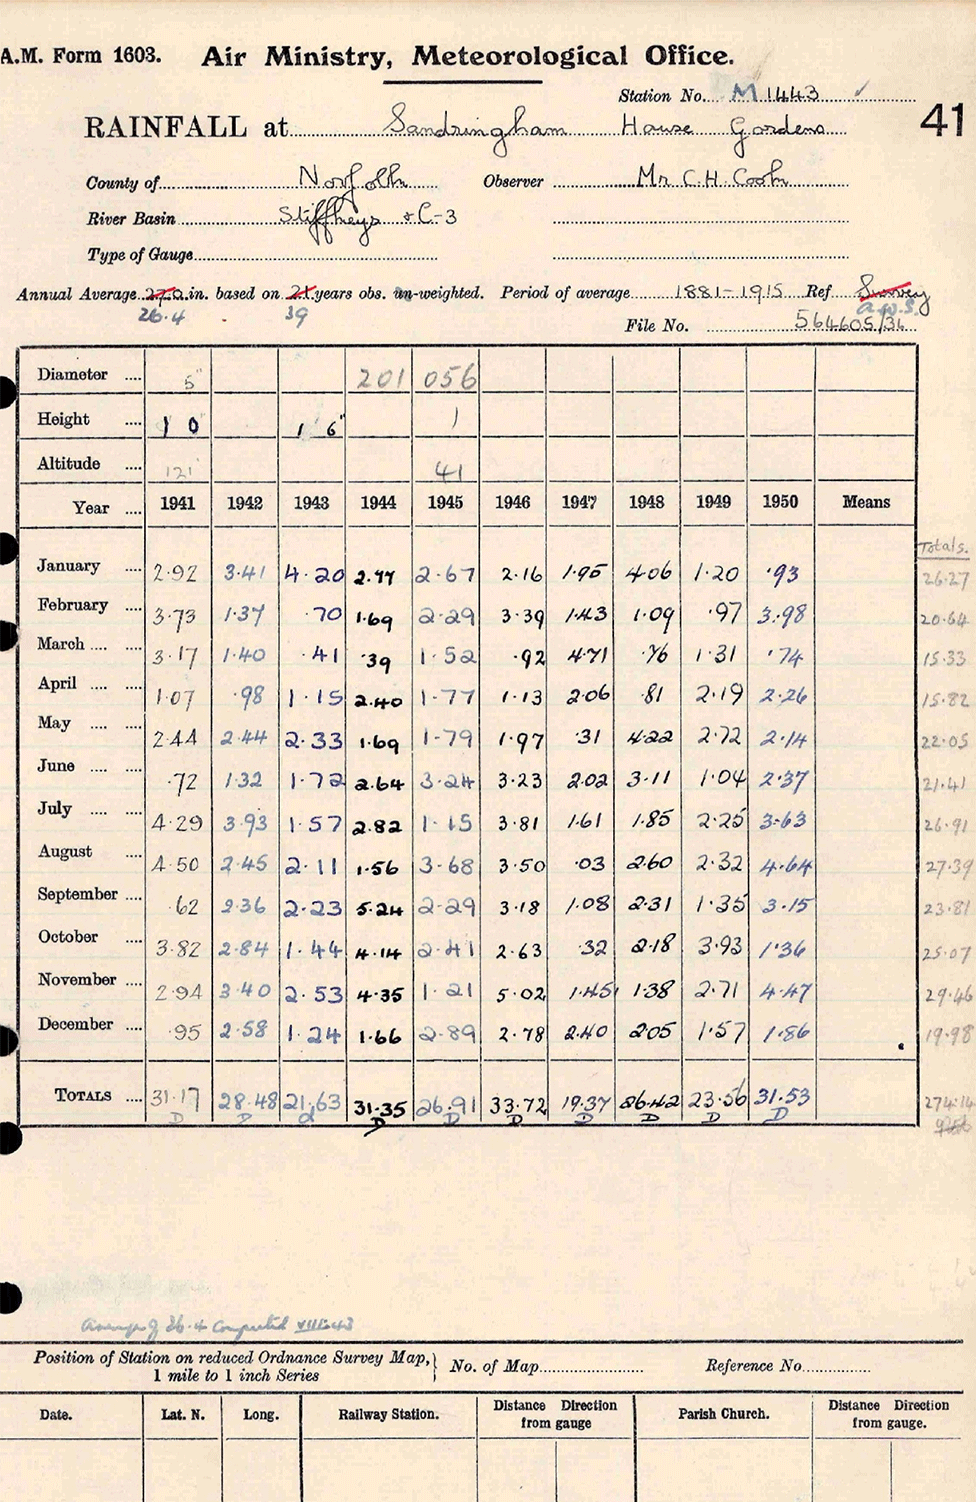 A.M. Form 1603. Air Ministry, Meteorological Office.
Station No. M 1443 ✓
41
RAINFALL at Sandringham House Gardens
County of Norfolk Observer Mr C.H. Cook
River Basin Stiffkeys &C-3
Type of Gauge
Annual Average 27.0 in. based on 21 years obs. un-weighted. Period of average 1881-1915 Ref Survey
26.4 39 a.w.s.
File No. 564605/36
Diameter .... 5" 201 056
Height .... 1' 0" 1' 6" 1
Altitude .... 121' 41
Year .... 1941 1942 1943 1944 1945 1946 1947 1948 1949 1950 Means
Totals.
January .... 2.92 3.41 4.20 2.77 2.67 2.16 1.95 4.06 1.20 .93 26.27
February .... 3.73 1.37 .70 1.69 2.29 3.39 1.43 1.09 .97 3.98 20.64
March .... .... 3.17 1.40 .41 .39 1.52 .92 4.71 .76 1.31 .74 15.33
April .... .... 1.07 .98 1.15 2.40 1.77 1.13 2.06 .81 2.19 2.26 15.82
May .... .... 2.44 2.44 2.33 1.69 1.79 1.97 .31 4.22 2.72 2.14 22.05
June .... .... .72 1.32 1.72 2.64 3.24 3.23 2.02 3.11 1.04 2.37 21.41
July .... .... 4.29 3.93 1.57 2.82 1.15 3.81 1.61 1.85 2.25 3.63 26.91
August .... 4.50 2.45 2.11 1.56 3.68 3.50 .03 2.60 2.32 4.64 27.39
September .... .62 2.36 2.23 5.24 2.29 3.18 1.08 2.31 1.35 3.15 23.81
October .... 3.82 2.84 1.44 4.14 2.41 2.63 .32 2.18 3.93 1.36 25.07
November .... 2.94 3.40 2.53 4.35 1.21 5.02 1.45 1.38 2.71 4.47 29.46
December .... .95 2.58 1.24 1.66 2.89 2.78 2.40 2.05 1.57 1.86 19.98
TOTALS .... 31.17 28.48 21.63 31.35 26.91 33.72 19.37 26.42 23.56 31.53 274.14
D D d D D D D D D D
Average of 26.4 computed VIII.43
Position of Station on reduced Ordnance Survey Map, } No. of Map Reference No.
1 mile to 1 inch Series
Date. Lat. N. Long. Railway Station. Distance from gauge Direction Parish Church. Distance Direction from gauge.